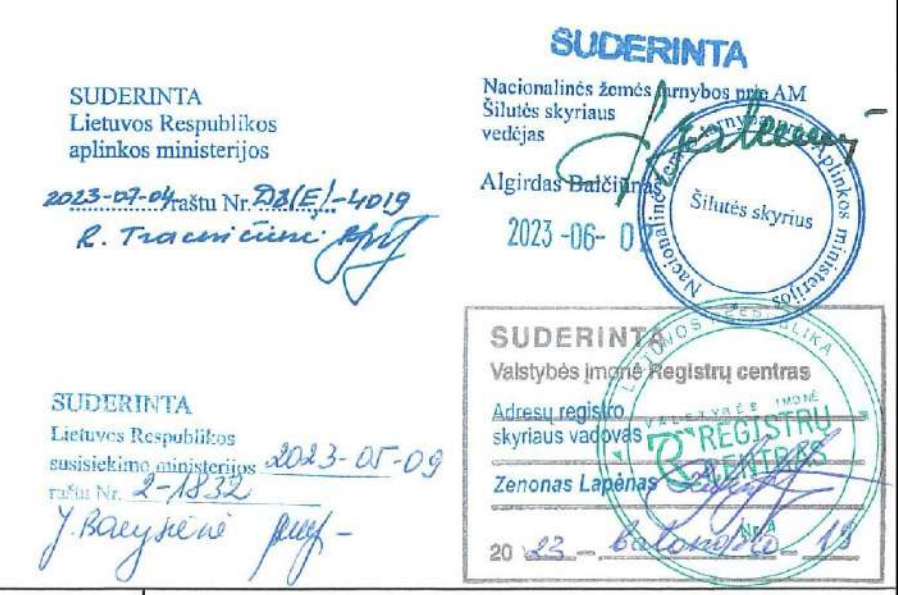 SUDERINTA
Lietuvos Respublikos
aplinkos ministerijos
2023-07-04 raštu Nr. D8(E)-4019
R.
SUDERINTA
Nacionalinės žemės tarnybos prie AM
Šilutės skyriaus
vedėjas
Algirdas Balčiūnas
2023-06-0
Nacionalinė žemės tarnyba prie Aplinkos ministerijos
Šilutės skyrius
SUDERINTA
Lietuvos Respublikos
susisiekimo ministerijos 2023-05-09
raštu Nr. 2-1832
J.
SUDERINTA
Valstybės įmonė Registrų centras
Adresų registro
skyriaus vadovas
Zenonas Lapėnas
2023 – balandžio – 19
LIETUVOS RESPUBLIKA
VALSTYBĖS ĮMONĖ
REGISTRŲ
CENTRAS